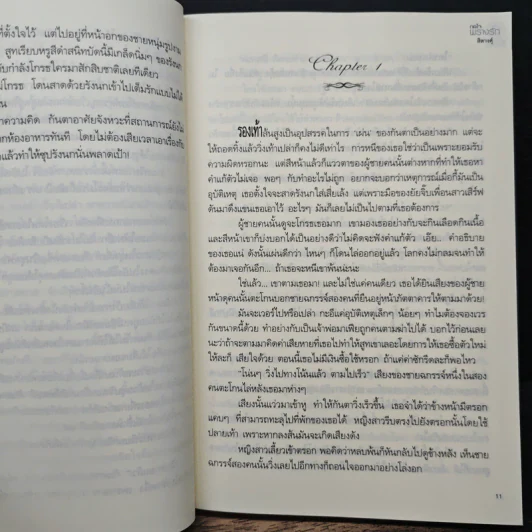 ที่ตั้งใจไว้ แต่ไปอยู่ที่หน้าอกของชายหนุ่มรูปงาม
สูทเรียบหรูสีดำสนิทบัดนี้มีเกล็ดนิ่มๆ ของรังนก
กำลังโกรธใครมาสักสิบชาติเลยทีเดียว
โกรธ โดนสาดด้วยรังนกเข้าไปเต็มรักแบบไม่ได้
ความคิด กันตาอาศัยจังหวะที่สถานการณ์ยัง
กห้องอาหารทันที โดยไม่ต้องเสียเวลาเอาเรื่องกับ
แล้วทำให้ซุปรังนกนั่นพลาดเป้า!
พรางรัก
สีดาวตุ้
Chapter 1
รองเท้าส้นสูงเป็นอุปสรรคในการ 'เผ่น' ของกันตาเป็นอย่างมาก แต่จะ
ให้ถอดทิ้งแล้ววิ่งเท้าเปล่าก็คงไม่ดีเท่าไร การหนีของเธอใช่ว่าเป็นเพราะยอมรับ
ความผิดหรอกนะ แต่สีหน้าแล้วก็แววตาของผู้ชายคนนั้นต่างหากที่ทำให้เธอหา
คำแก้ตัวไม่เจอ พอๆ กับทำอะไรไม่ถูก อยากจะบอกว่าเหตุการณ์เมื่อกี้มันเป็น
อุบัติเหตุ เธอตั้งใจจะสาดรังนกใส่เสี่ยเล้ง แต่เพราะมือของยัยจิ๊บเพื่อนสาวเสิร์ฟ
ดันมาดึงแขนเธอเอาไว้ อะไรๆ มันก็เลยไม่เป็นไปตามที่เธอต้องการ
ผู้ชายคนนั้นดูจะโกรธเธอมาก เขามองเธออย่างกับจะกินเลือดกินเนื้อ
และสีหน้าเขาก็บ่งบอกได้เป็นอย่างดีว่าไม่คิดจะฟังคำแก้ตัว เอ๊ย... คำอธิบาย
ของเธอแน่ ดังนั้นเผ่นดีกว่า ไหนๆ ก็โดนไล่ออกอยู่แล้ว โลกคงไม่กลมจนทำให้
ต้องมาเจอกันอีก... ถ้าเธอจะหนีเขาพ้นน่ะนะ
ใช่แล้ว... เขาตามเธอมา! และไม่ใช่แค่คนเดียว เธอได้ยินเสียงของผู้ชาย
หน้าดุคนนั้นตะโกนบอกชายฉกรรจ์สองคนที่ยืนอยู่หน้าภัตตาคารให้ตามมาด้วย!
มันจะเวอร์ไปหรือเปล่า กะอีแค่อุบัติเหตุเล็กๆ น้อยๆ ทำไมต้องจองเวร
กันขนาดนี้ด้วย ทำอย่างกับเป็นเจ้าพ่อมาเฟียถูกคนตามฆ่าไปได้ บอกไว้ก่อนเลย
นะว่าถ้าจะตามมาคิดค่าเสียหายที่เธอไปทำให้สูทเขาเลอะโดยการให้เธอซื้อตัวใหม่
ให้ละก็ เสียใจด้วย ตอนนี้เธอไม่มีเงินซื้อใช้หรอก ถ้าแค่ค่าซักรีดละก็พอไหว
"โน่นๆ วิ่งไปทางโน้นแล้ว ตามไปเร็ว" เสียงของชายฉกรรจ์หนึ่งในสอง
คนตะโกนไล่หลังเธอมาห่างๆ
เสียงนั้นแว่วมาเข้าหู ทำให้กันตาวิ่งเร็วขึ้น เธอจำได้ว่าข้างหน้ามีตรอก
แคบๆ ที่สามารถทะลุไปที่พักของเธอได้ หญิงสาวรีบตรงไปยังตรอกนั้นโดยใช้
ปลายเท้า เพราะหากลงส้นมันจะเกิดเสียงดัง
หญิงสาวเลี้ยวเข้าตรอก พอคิดว่าหลบพ้นก็หันกลับไปดูข้างหลัง เห็นชาย
ฉกรรจ์สองคนนั้นวิ่งเลยไปอีกทางก็ถอนใจออกมาอย่างโล่งอก
11